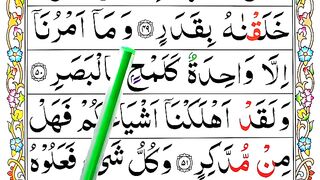 خَلَقْنٰهُ بِقَدَرٍ ﴿۴۹﴾ وَ مَاۤ اَمْرُنَاۤ
اِلَّا وَاحِدَةٌ كَلَمْحٍۭ بِالْبَصَرِ ﴿۵۰﴾
وَلَقَدْ اَهْلَكْنَاۤ اَشْيَاعَكُمْ فَهَلْ
مِنْ مُّدَّكِرٍ ﴿۵۱﴾ وَكُلُّ شَیْءٍ فَعَلُوْهُ